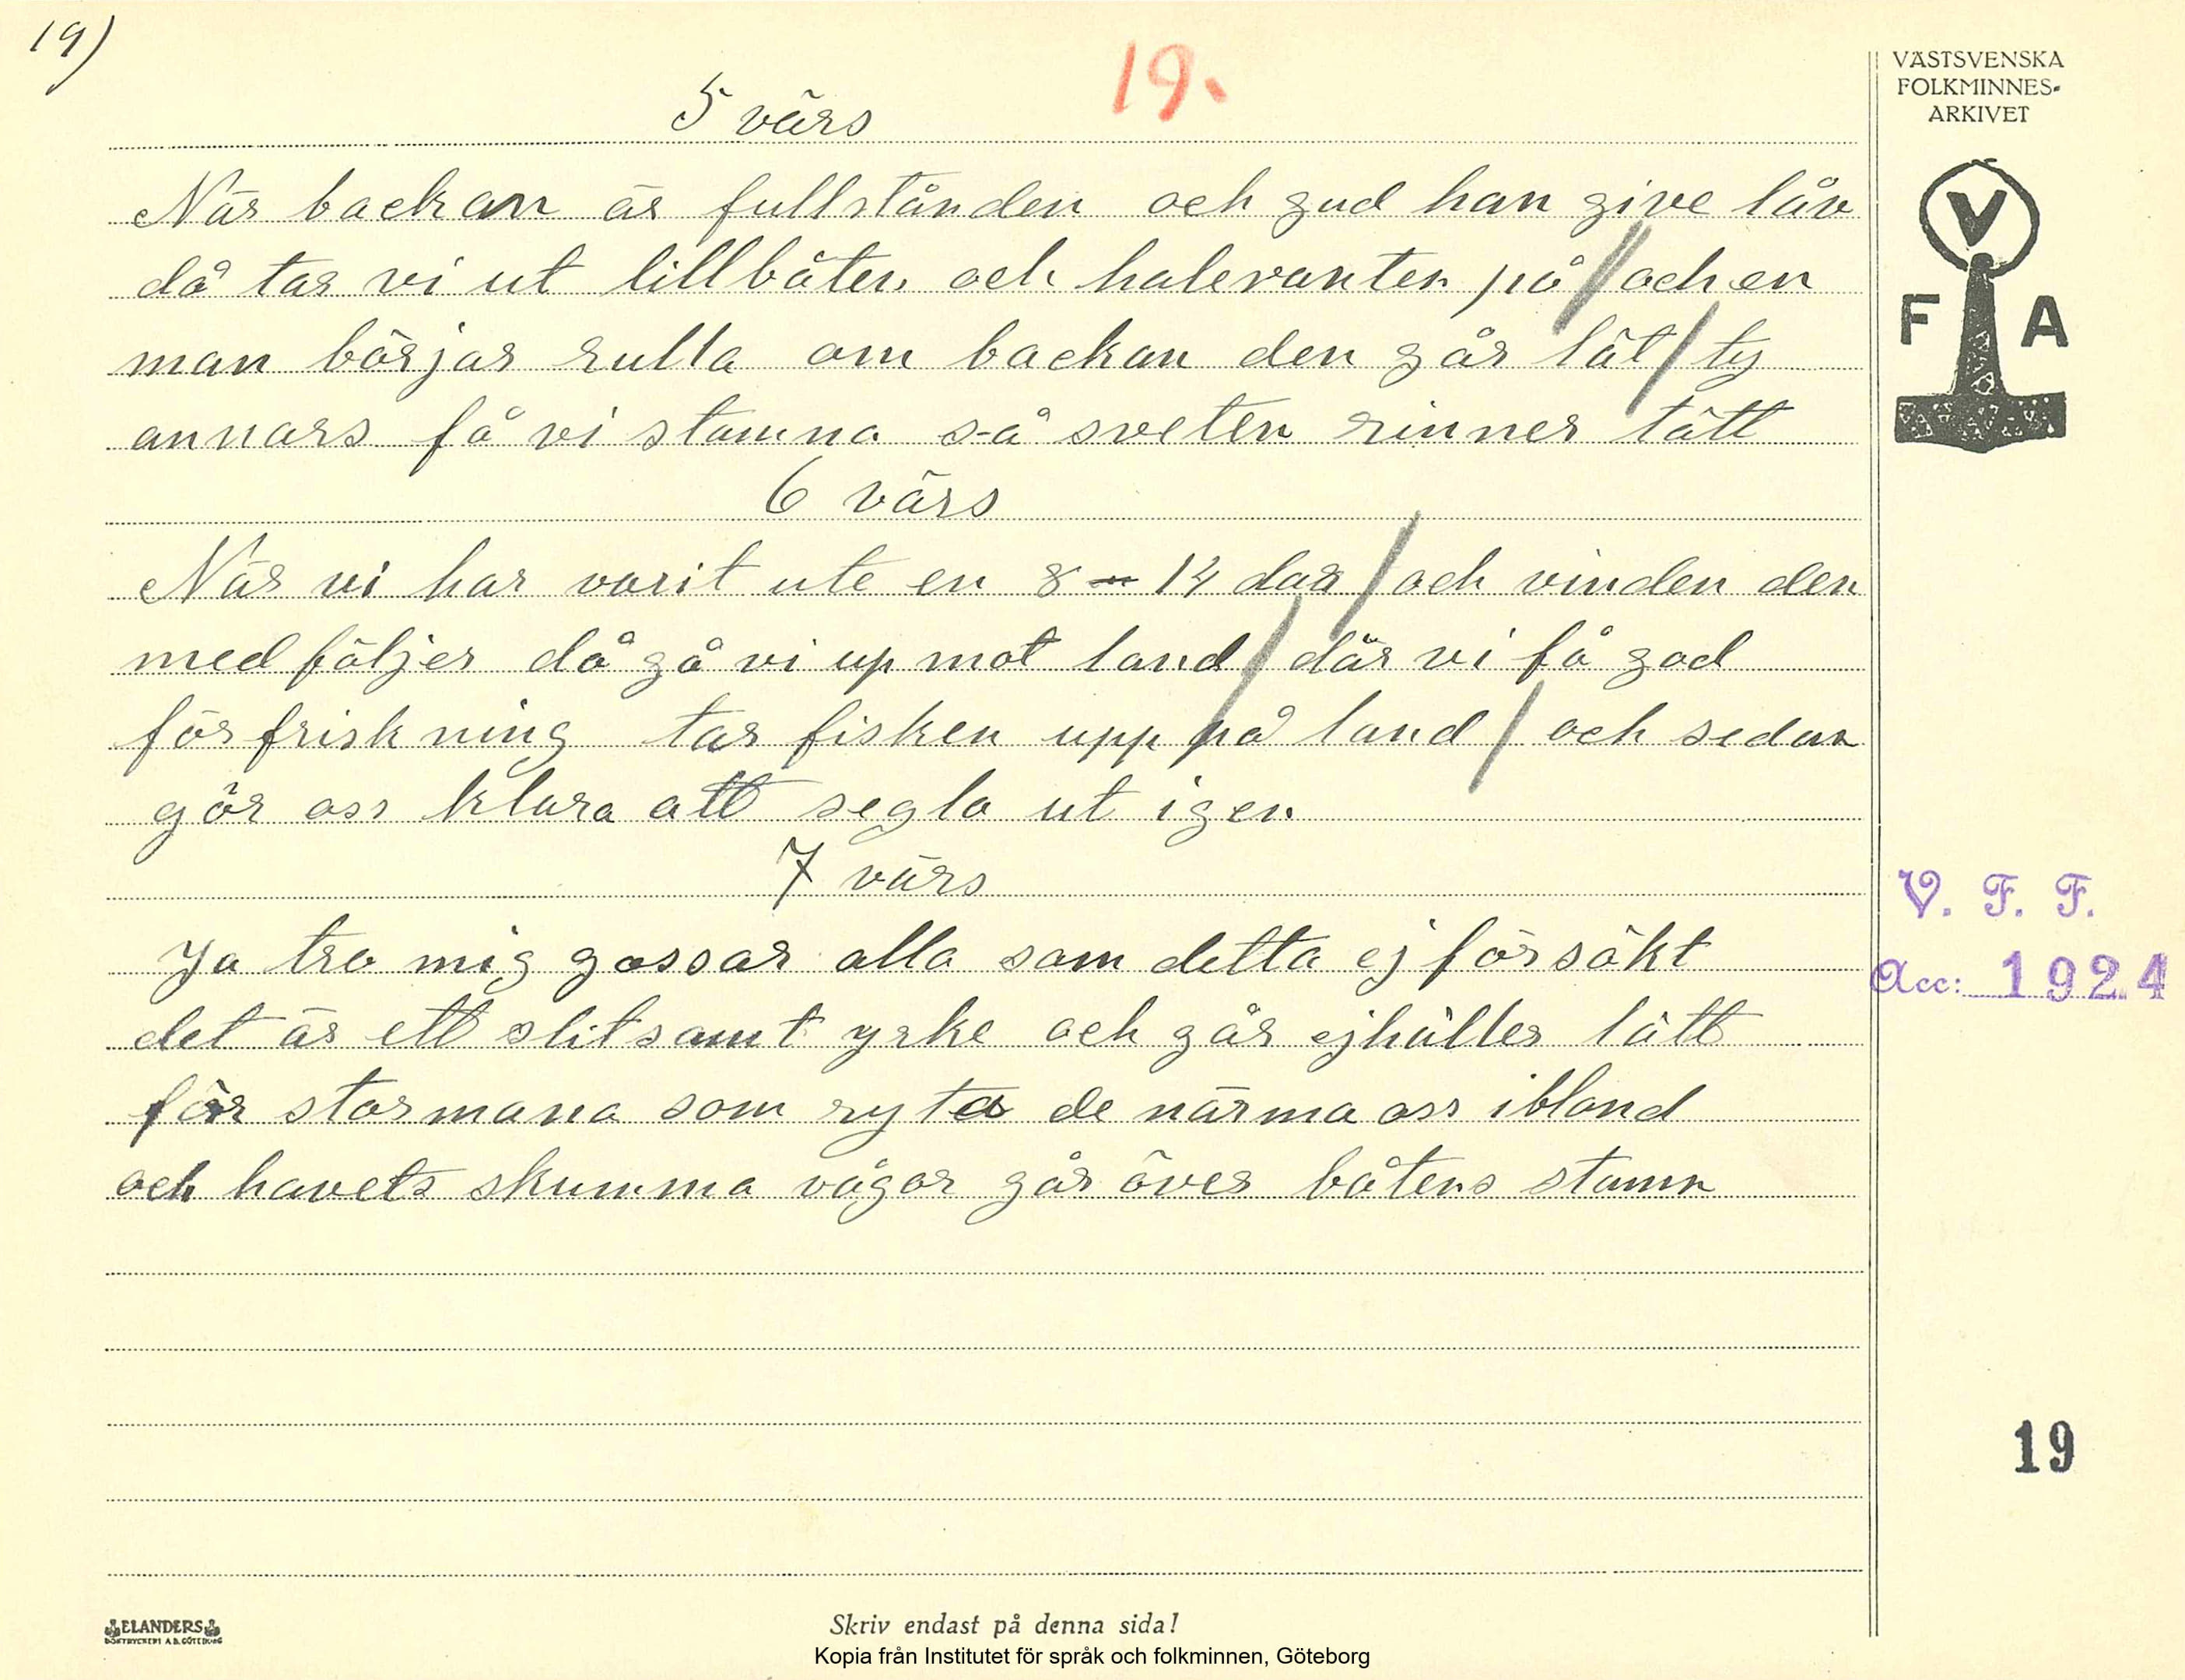 19)
19.
5 värs
När backan är fullstånden och gud han give låv
då tar vi ut lillbåten och halevanten på / och en
man börjar rulla om backan den går lät / ty
annars få vi stamna så sveten rinner tätt
6 värs
När vi har varit ute en 8 - 14 dar / och vinden den
med följer då gå vi up mot land / där vi få god
förfriskning tar fisken upp på land / och sedan
gör oss klara att segla ut igen
7 värs
Ja tro mig gossar alla som detta ej försökt
det är ett slitsamt yrke och går ejhäller lätt
för stormana som ryta de närma oss ibland
och havets skumma vågor går över båtens stamn
VÄSTSVENSKA
FOLKMINNES-
ARKIVET
V
F A
V. F. F.
Acc: 1924
19
ELANDERS
BOKTRYCKERI A.B. GÖTEBORG
Skriv endast på denna sida!
Kopia från Institutet för språk och folkminnen, Göteborg